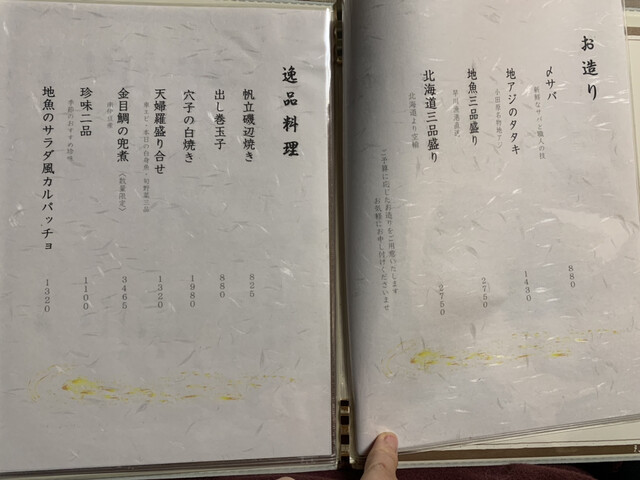 お造り
〆サバ
新鮮なサバと職人の技
880
地アジのタタキ
小田原名物地アジ
1430
地魚三品盛り
早川漁港直送
2750
北海道三品盛り
北海道より空輸
2750
ご予算に応じたお造りをご用意いたします
お気軽にお申し付けくださいませ
逸品料理
帆立磯辺焼き
825
出し巻玉子
880
穴子の白焼き
1980
天婦羅盛り合せ
海老・本日の白身魚・旬野菜三品
1320
金目鯛の兜煮
〈数量限定〉
3465
珍味二品
季節のおすすめ珍味
1100
地魚のサラダ風カルパッチョ
1320